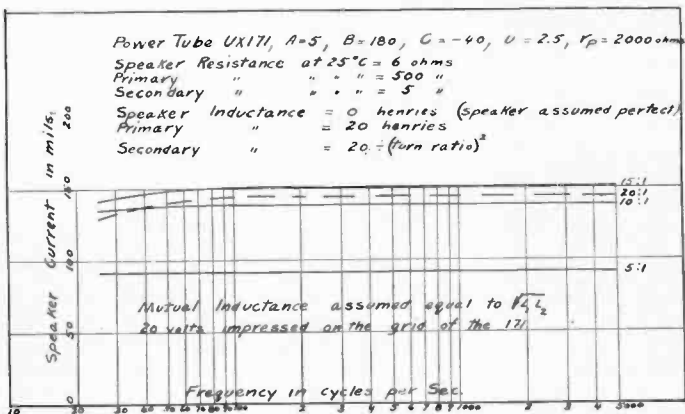 Power Tube UX171, A=5, B=180, C=-40, U=2.5, rp=2000 ohms
Speaker Resistance at 25°C = 6 ohms
Primary " " " " = 500 "
Secondary " " " " = 5 "
Speaker Inductance = 0 henries (speaker assumed perfect)
Primary " = 20 henries
Secondary " = 20 ÷ (turn ratio)²
Speaker Current in mils.
200
150
100
50
0
15:1
20:1
10:1
5:1
Mutual Inductance assumed equal to √L₁L₂
20 volts impressed on the grid of the 171
Frequency in cycles per Sec.
10 20 30 40 50 60 70 80 90 100 2 3 4 5 6 7 8 9 1000 2 3 4 5000